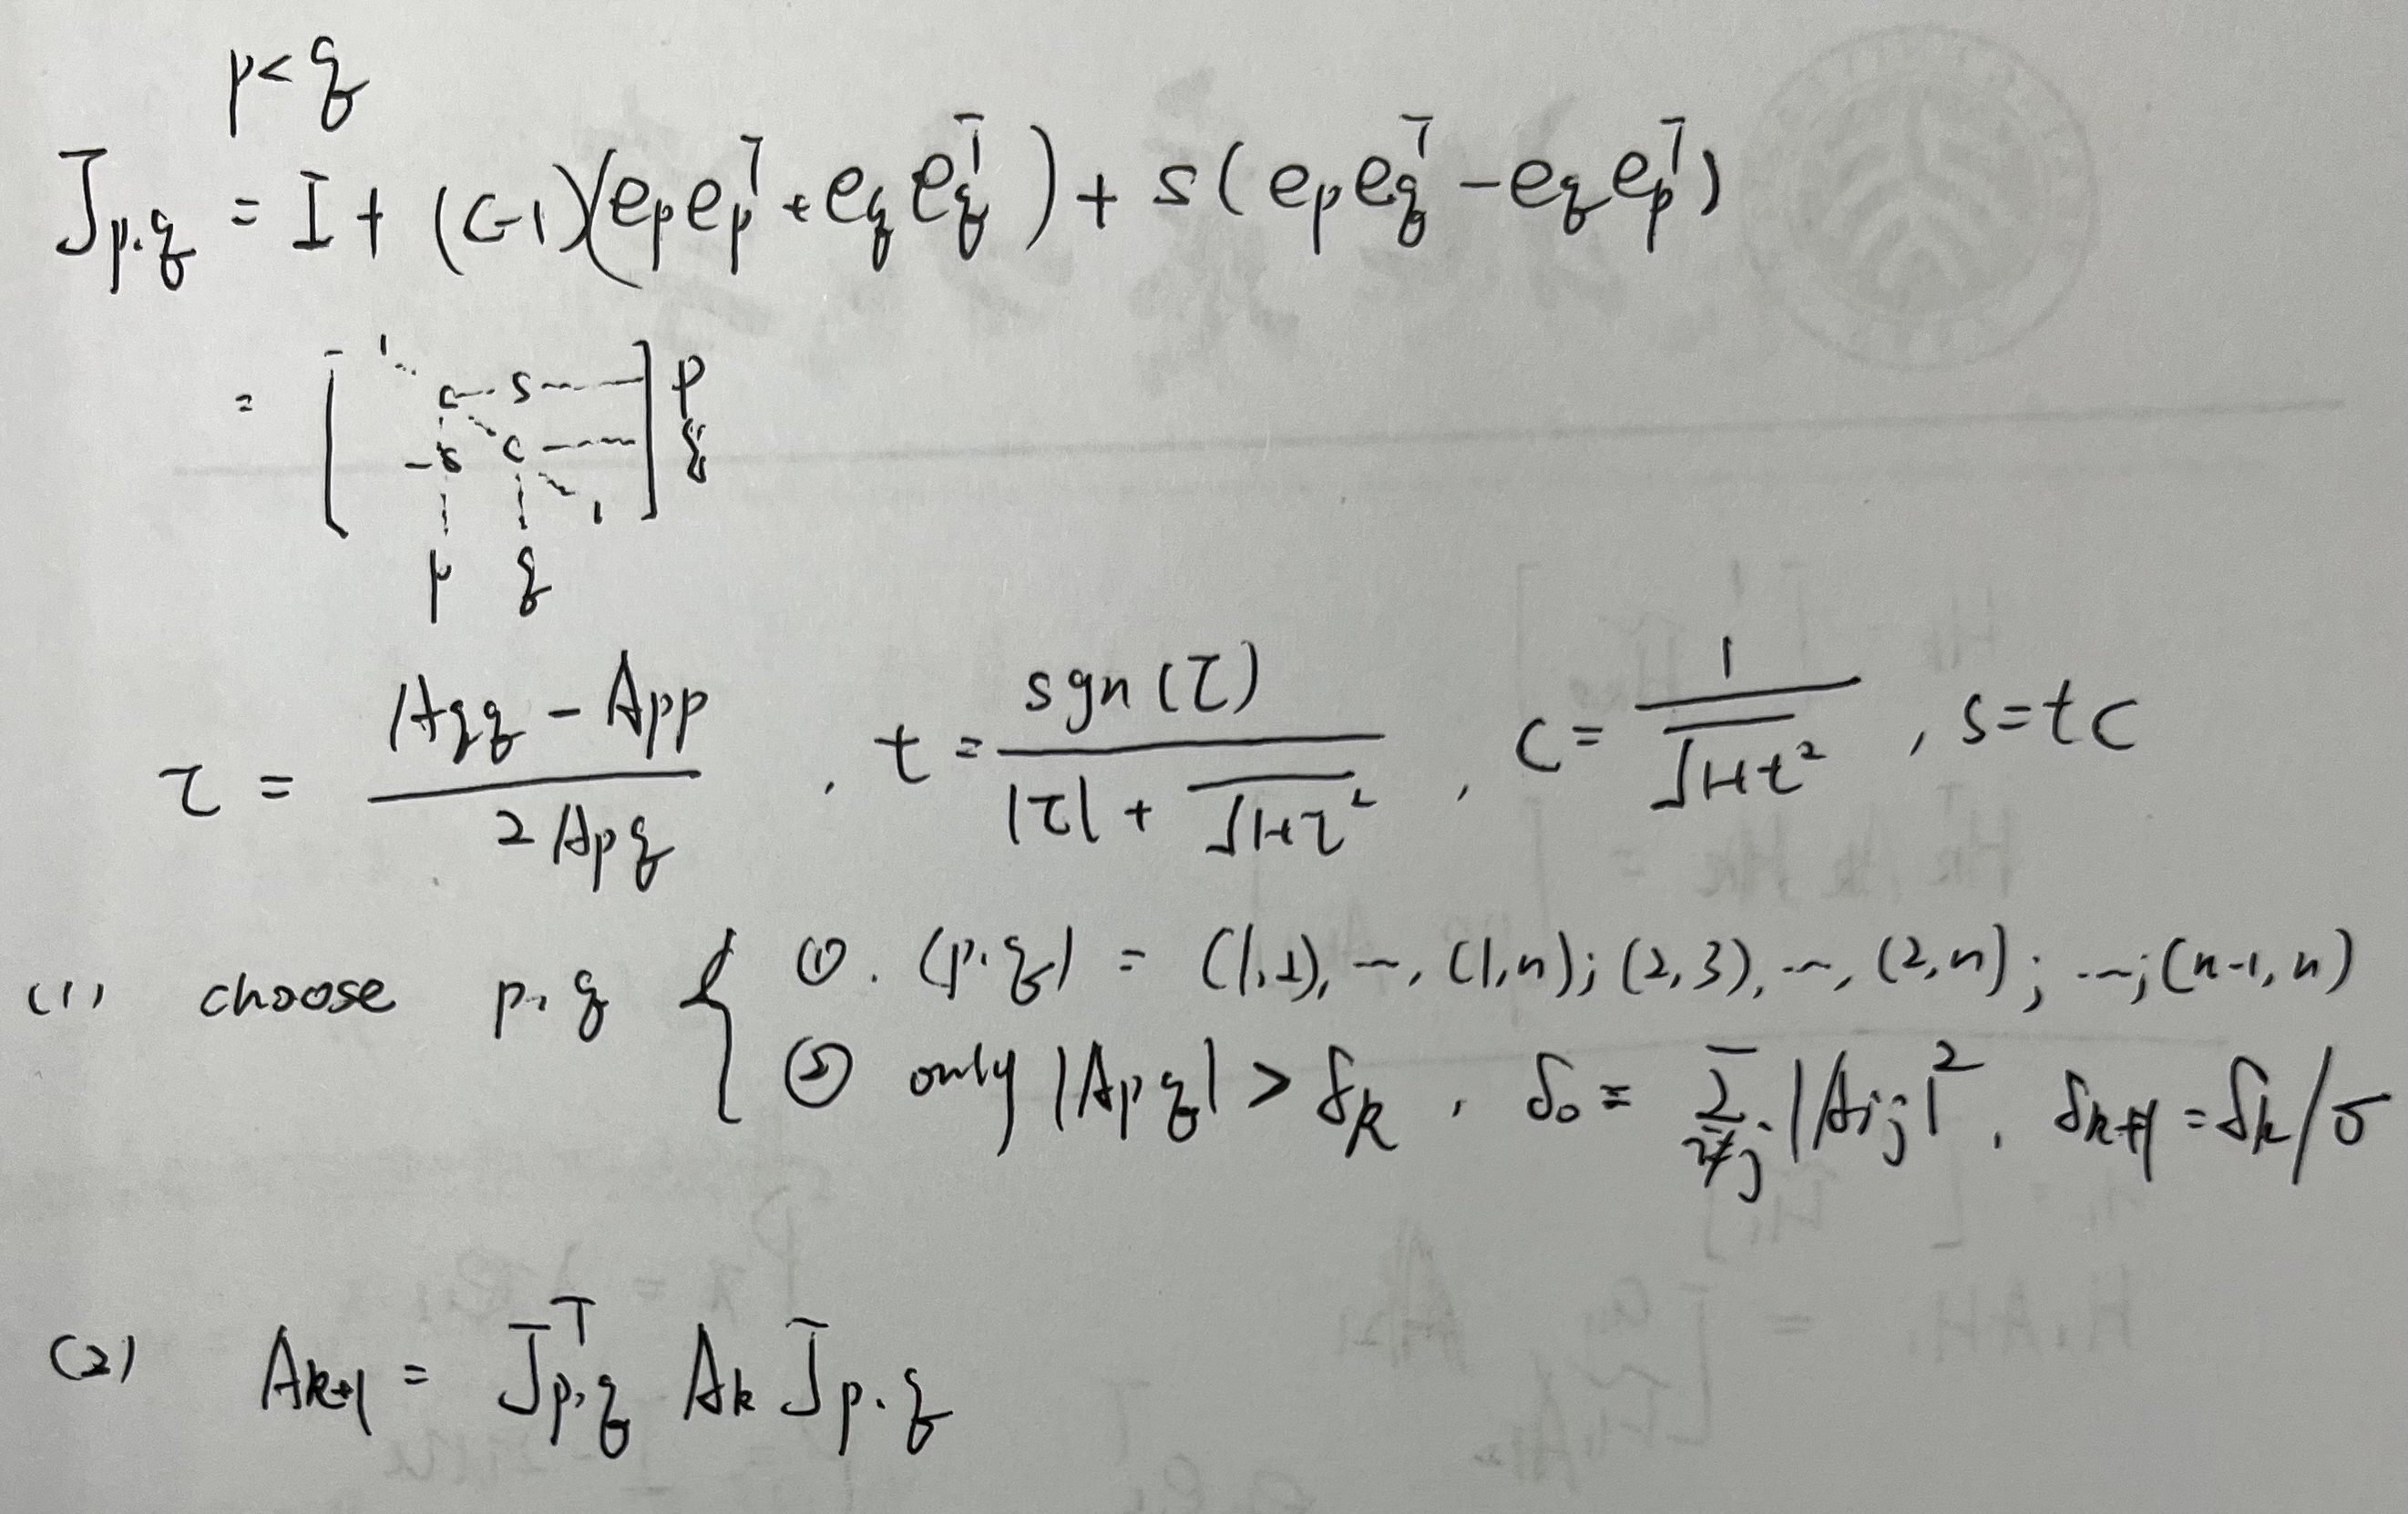 p<q
J_{p.q} = I + (c-1)(e_p e_p^T + e_q e_q^T) + s(e_p e_q^T - e_q e_p^T)
= [ 1 ⋱ c -- s ---- ] p
[ -s c ---- 1 ] q
p q
τ = (A_{qq} - A_{pp}) / (2A_{pq}) , t = sgn(τ) / (|τ| + √(1+τ²)) , c = 1 / √(1+t²) , s=tc
(1) choose p.q { ①. (p.q) = (1,2), ⋯, (1,n); (2,3), ⋯, (2,n); ⋯; (n-1,n)
② only |A_{pq}| > δ_k , δ_0 = Σ_{i≠j} |A_{ij}|² , δ_{k+1} = δ_k/σ
(2) A_{k+1} = J_{p,q}^T A_k J_{p.q}